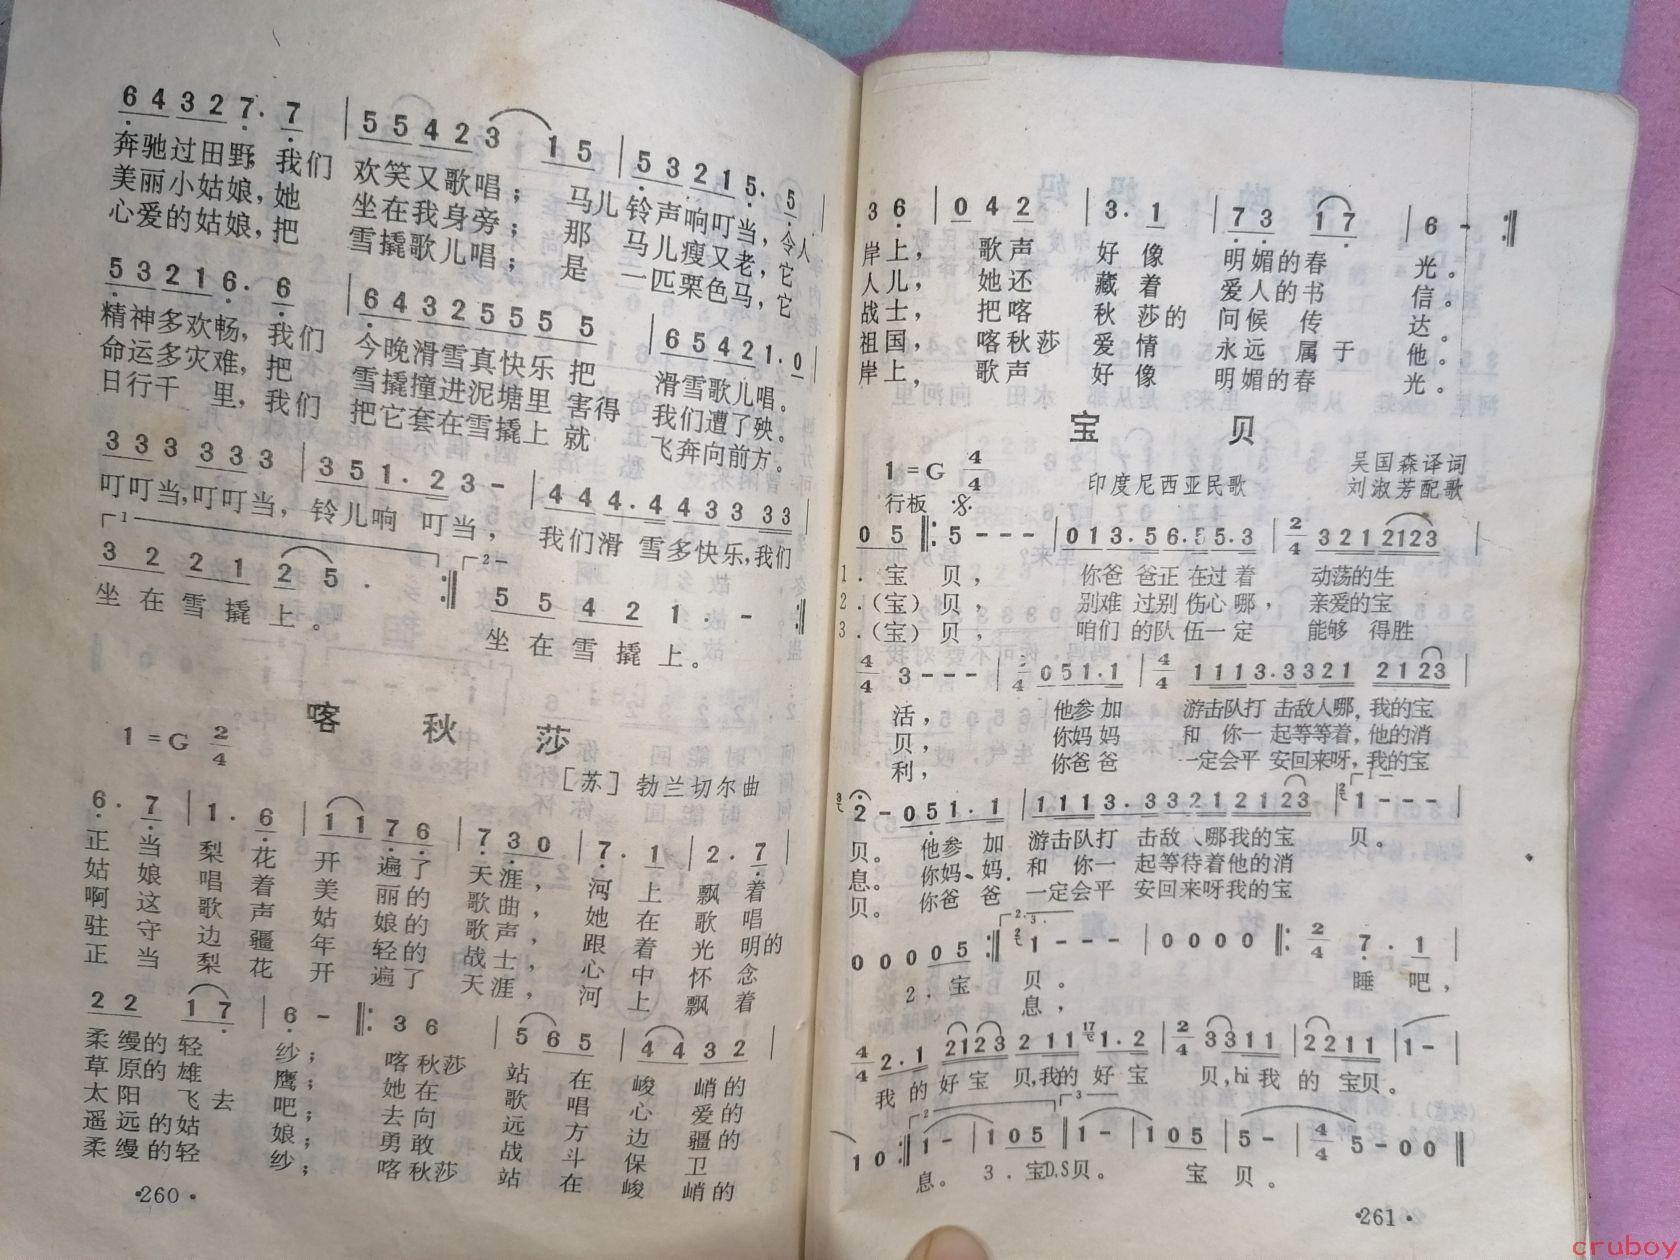 6 4 3 2 7. 7 | 5 5 4 2 3 1 5 | 5 3 2 1 5. 5 |
奔驰过田野,我们 欢笑又歌唱; 马儿铃声响叮当,令人
美丽小姑娘,她 坐在我身旁; 那马儿瘦又老,它
心爱的姑娘,把 雪撬歌儿唱; 是一匹栗色马,它
5 3 2 1 6. 6 | 6 4 3 2 5 5 5 5 | 6 5 4 2 1. 0
精神多欢畅,我们 今晚滑雪真快乐 把 滑雪歌儿唱。
命运多灾难,把 雪撬撞进泥塘里 害得 我们遭了殃。
日行千里,我们 把它套在雪撬上 就 飞奔向前方。
3 3 3 3 3 3 | 3 5 1. 2 3 - | 4 4 4. 4 4 3 3 3 3
叮叮当,叮叮当, 铃儿响 叮当, 我们滑 雪多快乐,我们
1
2
3 2 2 1 2 5 . :‖ 5 5 4 2 1 . - :‖
坐 在 雪 撬 上 。 坐 在 雪 撬 上 。
喀 秋 莎
1 = G 2/4
[苏] 勃兰切尔曲
6. 7 | 1. 6 | 1 1 7 6 | 7 3 0 | 7. 1 | 2. 7 |
正当 梨花 开遍了 天涯, 河上 飘着
姑娘 唱着 美丽的 歌曲, 她在 歌唱
啊这 歌声 姑娘的 歌声, 跟着 光明的
驻守 边疆 年轻的 战士, 心中 怀念
正当 梨花 开遍了 天涯, 河上 飘着
2 2 1 7 | 6 - ‖: 3 6 | 5 6 5 | 4 4 3 2 |
柔缦的轻 纱; 喀秋莎 站在 峻峭的
草原的雄 鹰; 她在 歌唱 心爱的
太阳飞去 吧; 去向 远方 边疆的
遥远的姑 娘; 勇敢 战斗 保卫
柔缦的轻 纱; 喀秋莎 站在 峻峭的
·260·
3 6 | 0 4 2 3. 1 7 3 1 7 | 6 - :‖
岸上, 歌声 好像 明媚的春 光。
人儿, 她还 藏着 爱人的书 信。
战士, 把喀 秋莎的 问候传 达。
祖国, 喀秋莎 爱情 永远属于 他。
岸上, 歌声 好像 明媚的春 光。
宝 贝
1 = G 4/4
吴国森译词
印度尼西亚民歌
刘淑芳配歌
行板
0 5 ‖: 5 - - - | 0 1 3. 5 6. 5 5. 3 | 2/4 3 2 1 2 1 2 3 |
1. 宝 贝, 你爸 爸正 在过着 动荡的生
2.(宝)贝, 别难 过别 伤心哪, 亲爱的宝
3.(宝)贝, 咱们 的队 伍一定 能够 得胜
4/4 3 - - - | 2/4 0 5 1. 1 | 4/4 1 1 1 3. 3 3 2 1 2 1 2 3 |
活, 他参加 游击队打 击敌人哪,我的宝
贝, 你妈妈 和 你一 起等等着,他的消
利, 你爸爸 一定会平 安回来呀,我的宝
2 - 0 5 1. 1 | 1 1 1 3. 3 3 2 1 2 1 2 3 | 1 - - - |
贝。 他参 加 游击队打 击敌人哪我的宝 贝。
息。 你妈 妈 和 你一 起等待着他的消
贝。 你爸 爸 一定会平 安回来呀我的宝
2. 3.
0 0 0 0 5 :‖ 1 - - - | 0 0 0 0 ‖: 2/4 7. 1 |
2.宝 贝。 睡 吧,
息,
4/4 2. 1 2 1 2 3 2 1 1 1. 2 | 2/4 3 3 1 1 | 2 2 1 1 | 1 - |
我的 好宝 贝,我的 好宝 贝,hi我 的 宝贝。
2
3
1 0 :‖ 1 - | 1 0 5 ‖ 1 - | 1 0 5 | 5 - | 4/4 5 - 0 0 ‖
息。 3.宝D.S贝。 宝 贝。
·261·
cruboy